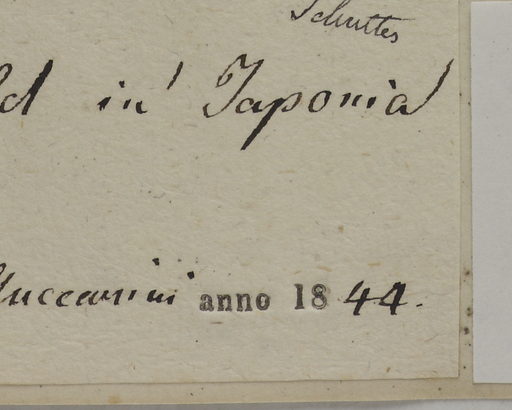 Schultes
in Japonia
Zuccarini anno 1844.